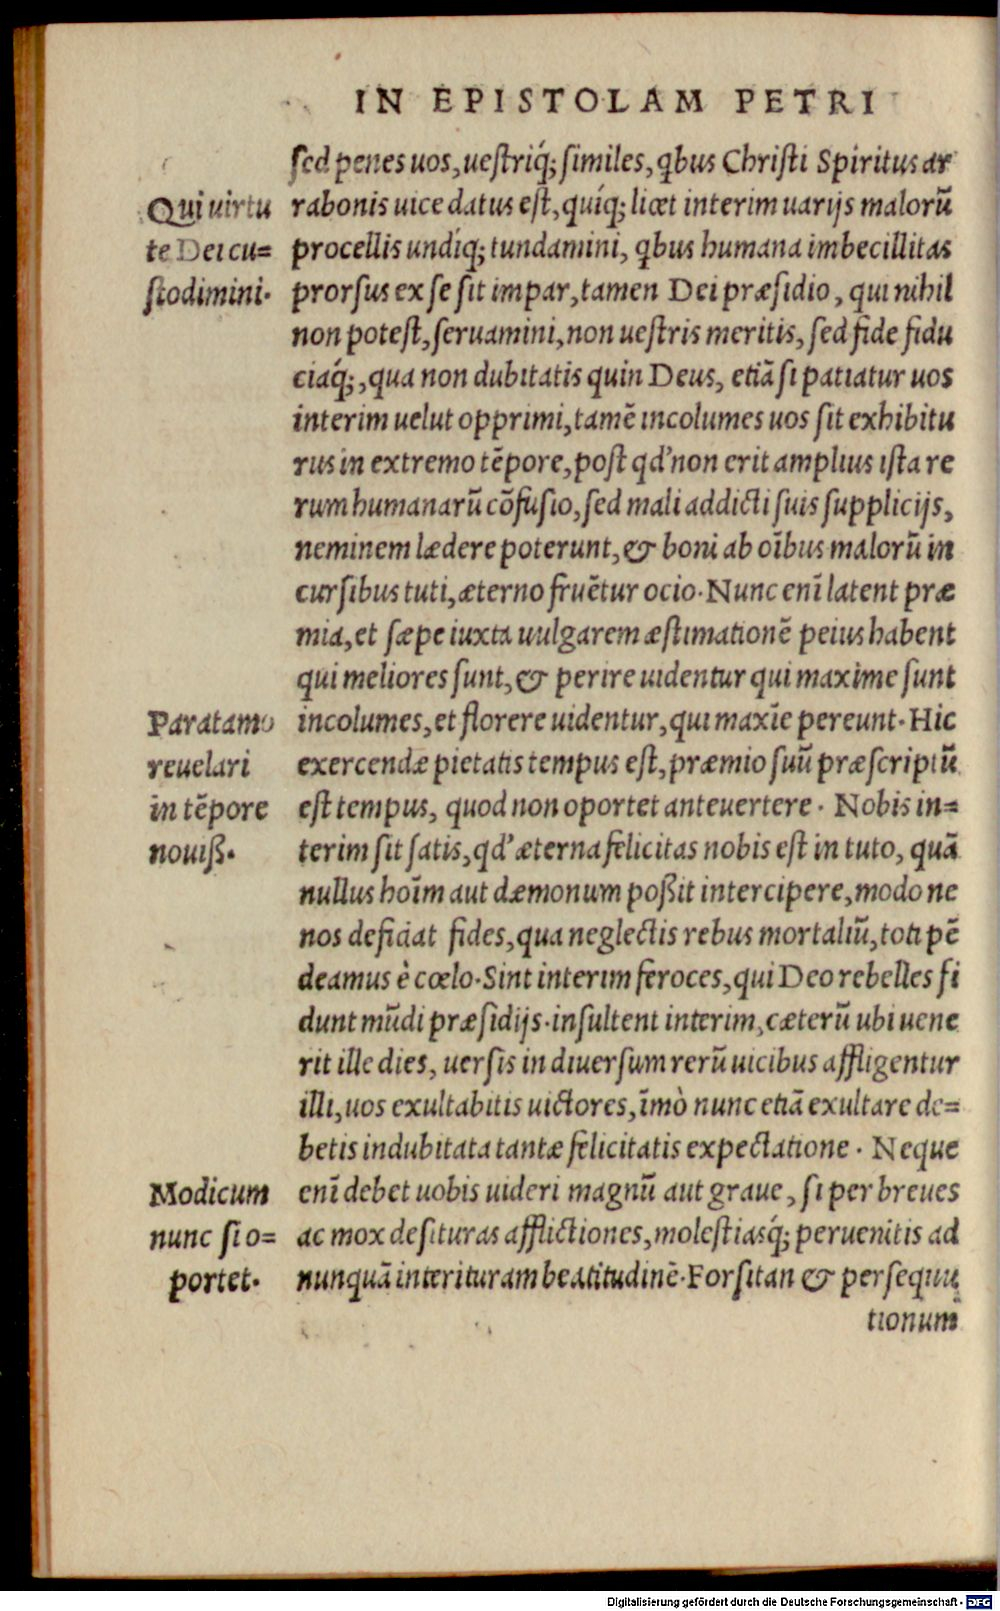 IN EPISTOLAM PETRI
sed penes uos, uestriq́; similes, qbus Christi Spiritus ar
rabonis uice datus est, quíq; licet interim uarijs malorũ
procellis undíq; tundamini, qbus humana imbecillitas
prorsus ex se sit impar, tamen Dei præsidio, qui nihil
non potest, seruamini, non uestris meritis, sed fide fidu
ciaq́;, qua non dubitatis quin Deus, etiã si patiatur uos
interim uelut opprimi, tamẽ incolumes uos sit exhibitu
rus in extremo tẽpore, post qd' non erit amplius ista re
rum humanarũ cõfusio, sed mali addicti suis supplicijs,
neminem lædere poterunt, & boni ab oĩbus malorũ in
cursibus tuti, æterno fruẽtur ocio. Nunc enĩ latent præ
mia, et sæpe iuxta uulgarem æstimationẽ peius habent
qui meliores sunt, & perire uidentur qui maxime sunt
incolumes, et florere uidentur, qui maxĩe pereunt. Hic
exercendæ pietatis tempus est, præmio suũ præscriptũ
est tempus, quod non oportet anteuertere. Nobis in=
terim sit satis, qd' æterna felicitas nobis est in tuto, quã
nullus hoĩm aut dæmonum poßit intercipere, modo ne
nos deficiat fides, qua neglectis rebus mortaliũ, toti pẽ
deamus è cœlo. Sint interim feroces, qui Deo rebelles fi
dunt mũdi præsidijs. insultent interim, cæterũ ubi uene
rit ille dies, uersis in diuersum rerũ uicibus affligentur
illi, uos exultabitis uictores, ĩmò nunc etiã exultare de=
betis indubitata tantæ felicitatis expectatione. Neque
enĩ debet uobis uideri magnũ aut graue, si per breues
ac mox desituras afflictiones, molestiasq́; peruenitis ad
nunquã interituram beatitudinẽ. Forsitan & persequu
tionum
Qui uirtu
te Dei cu=
stodimini.
Parata mo
reuelari
in tẽpore
nouiß.
Modicum
nunc si o=
portet.
Digitalisierung gefördert durch die Deutsche Forschungsgemeinschaft - DFG